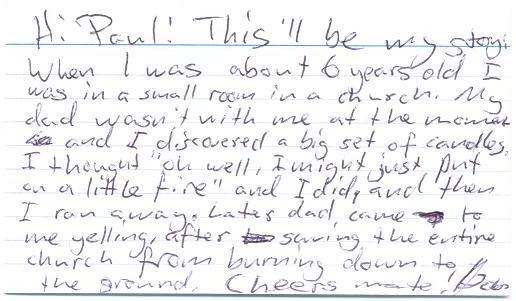 Hi Paul! This'll be my story:
When I was about 6 years old I
was in a small room in a church. My
dad wasn't with me at the moment
and I discovered a big set of candles.
I thought "oh well, I might just put
on a little fire" and I did, and then
I ran away. Later dad came to
me yelling, after saving the entire
church from burning down to
the ground. Cheers mate!